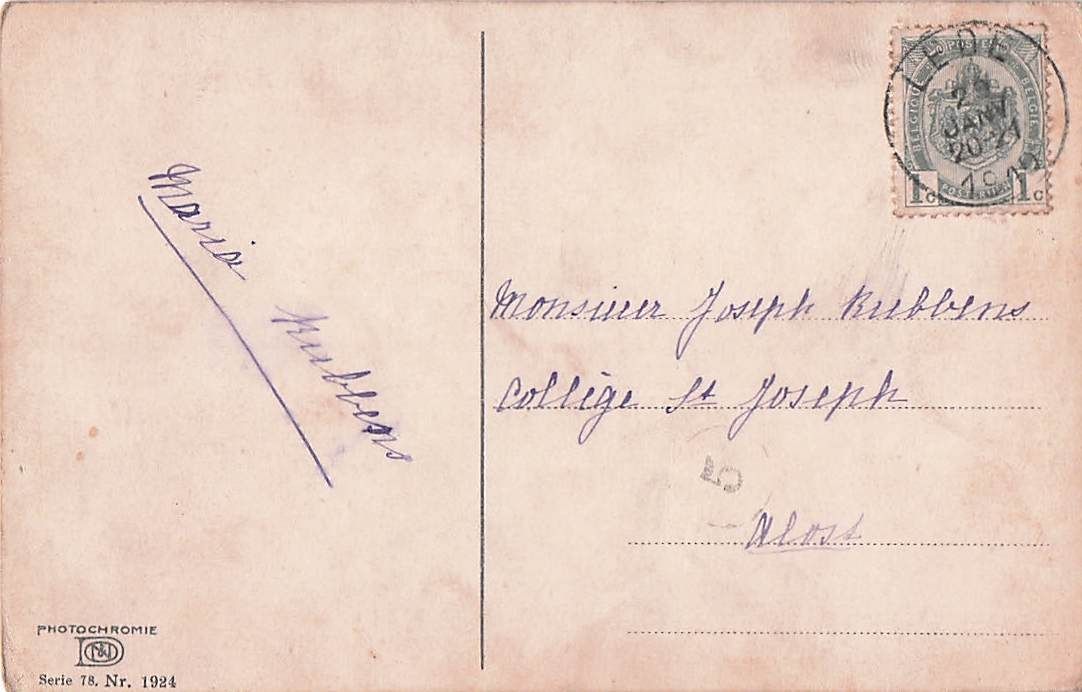 Maria Rubbens
LEDE
JANV
20-21
BELGIQUE POSTES BELGIE
1c 1c
Monsieur Joseph Rubbens
Collège St Joseph
5
Alost
PHOTOCHROMIE
Serie 78. Nr. 1924